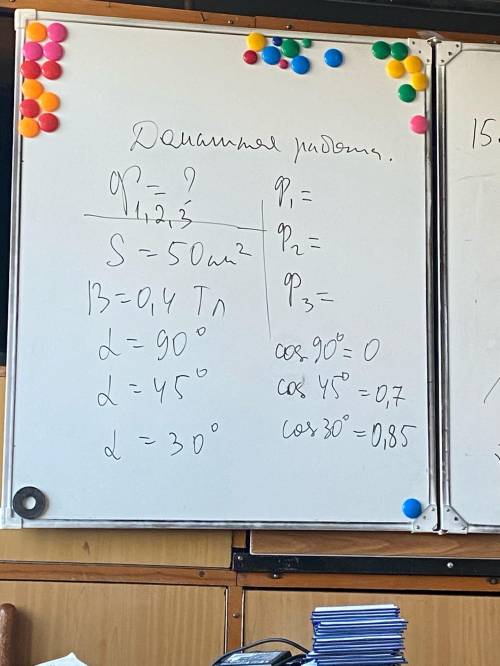 Домашняя работа.
Φ1,2,3 = ?
S = 50 см²
B = 0,4 Тл
α = 90°
α = 45°
α = 30°
Φ1 =
Φ2 =
Φ3 =
cos 90° = 0
cos 45° = 0,7
cos 30° = 0,85
15.